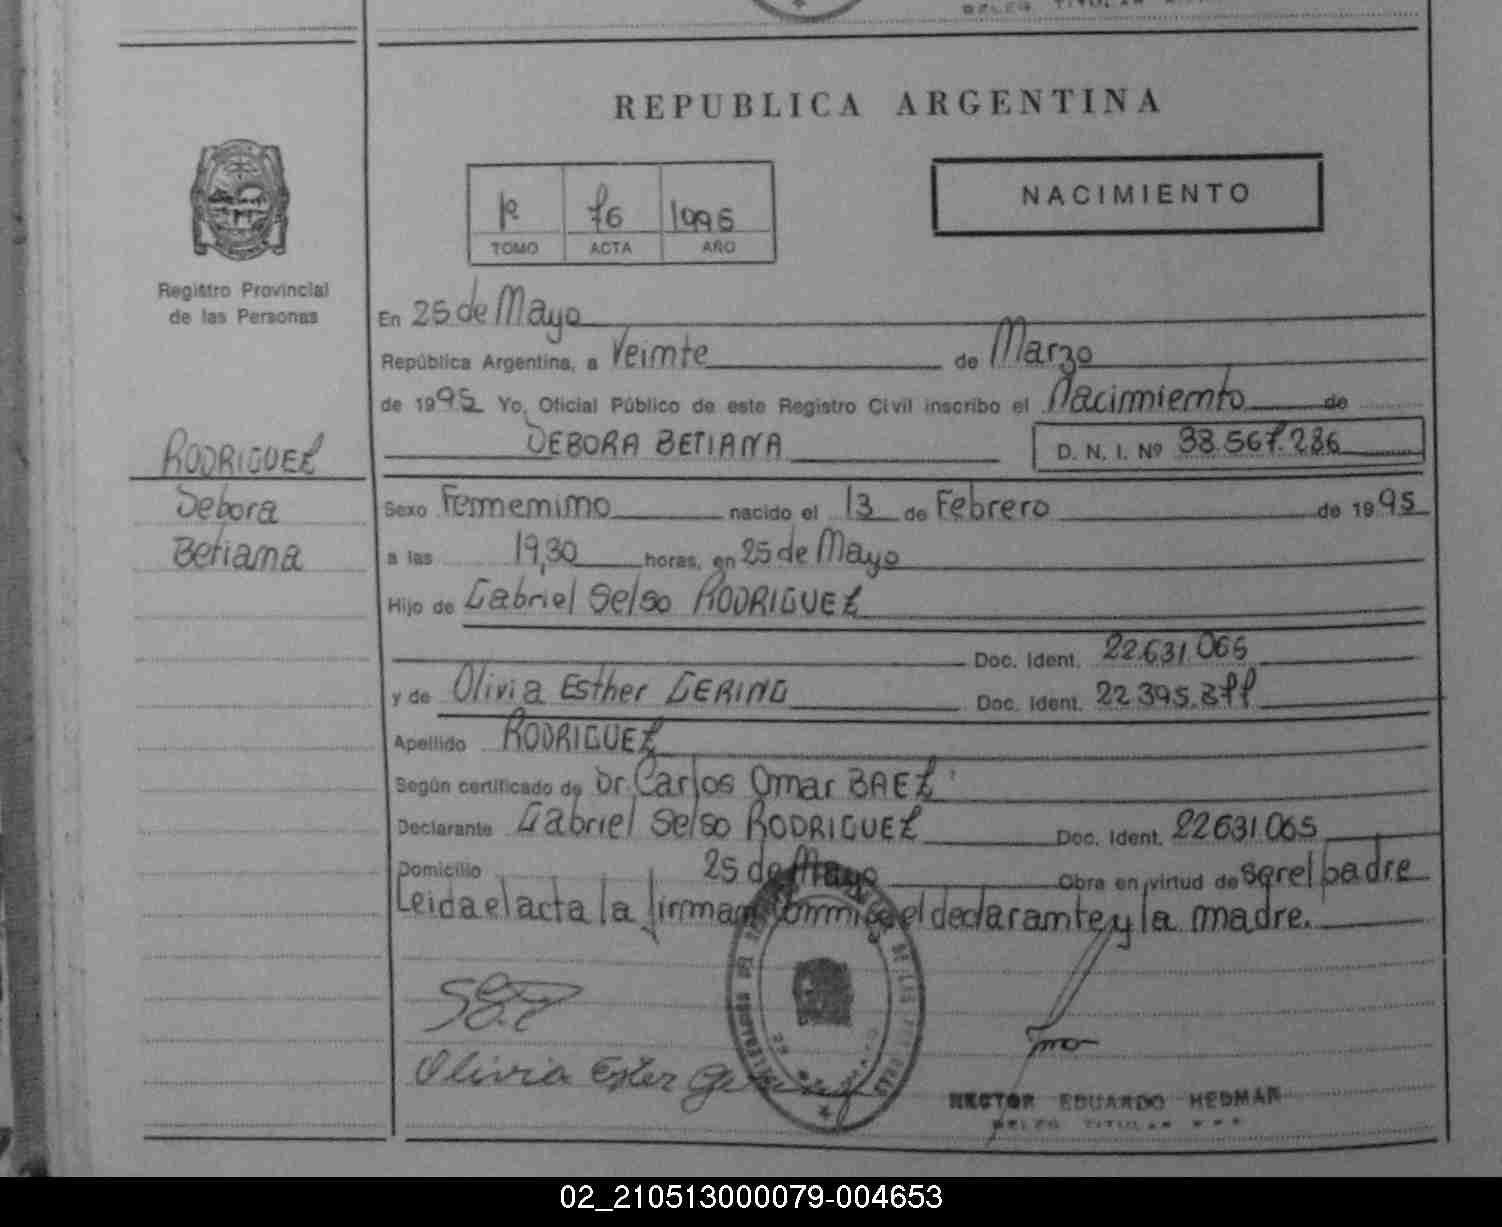 REPUBLICA ARGENTINA
NACIMIENTO
1º 76 1995
TOMO ACTA AÑO
Registro Provincial
de las Personas
RODRIGUEZ
Debora
Betiana
En 25 de Mayo
República Argentina, a Veinte de Marzo
de 1995 Yo, Oficial Público de este Registro Civil inscribo el Nacimiento de
DEBORA BETIANA D. N. I. Nº 38.567.286
Sexo Femenino nacido el 13 de Febrero de 1995
a las 19,30 horas, en 25 de Mayo
Hijo de Gabriel Selso RODRIGUEZ
Doc. Ident. 22.631.065
y de Olivia Esther GERING Doc. Ident. 22.395.877
Apellido RODRIGUEZ
Según certificado de Dr. Carlos Omar BAEZ
Declarante Gabriel Selso RODRIGUEZ Doc. Ident. 22631.065
Domicilio 25 de Mayo Obra en virtud de ser el padre
Leida el acta la firman conmigo el declarante y la madre.
Olivia Ester
HECTOR EDUARDO HEDMAN
DELEG TITULAR
02_210513000079-004653